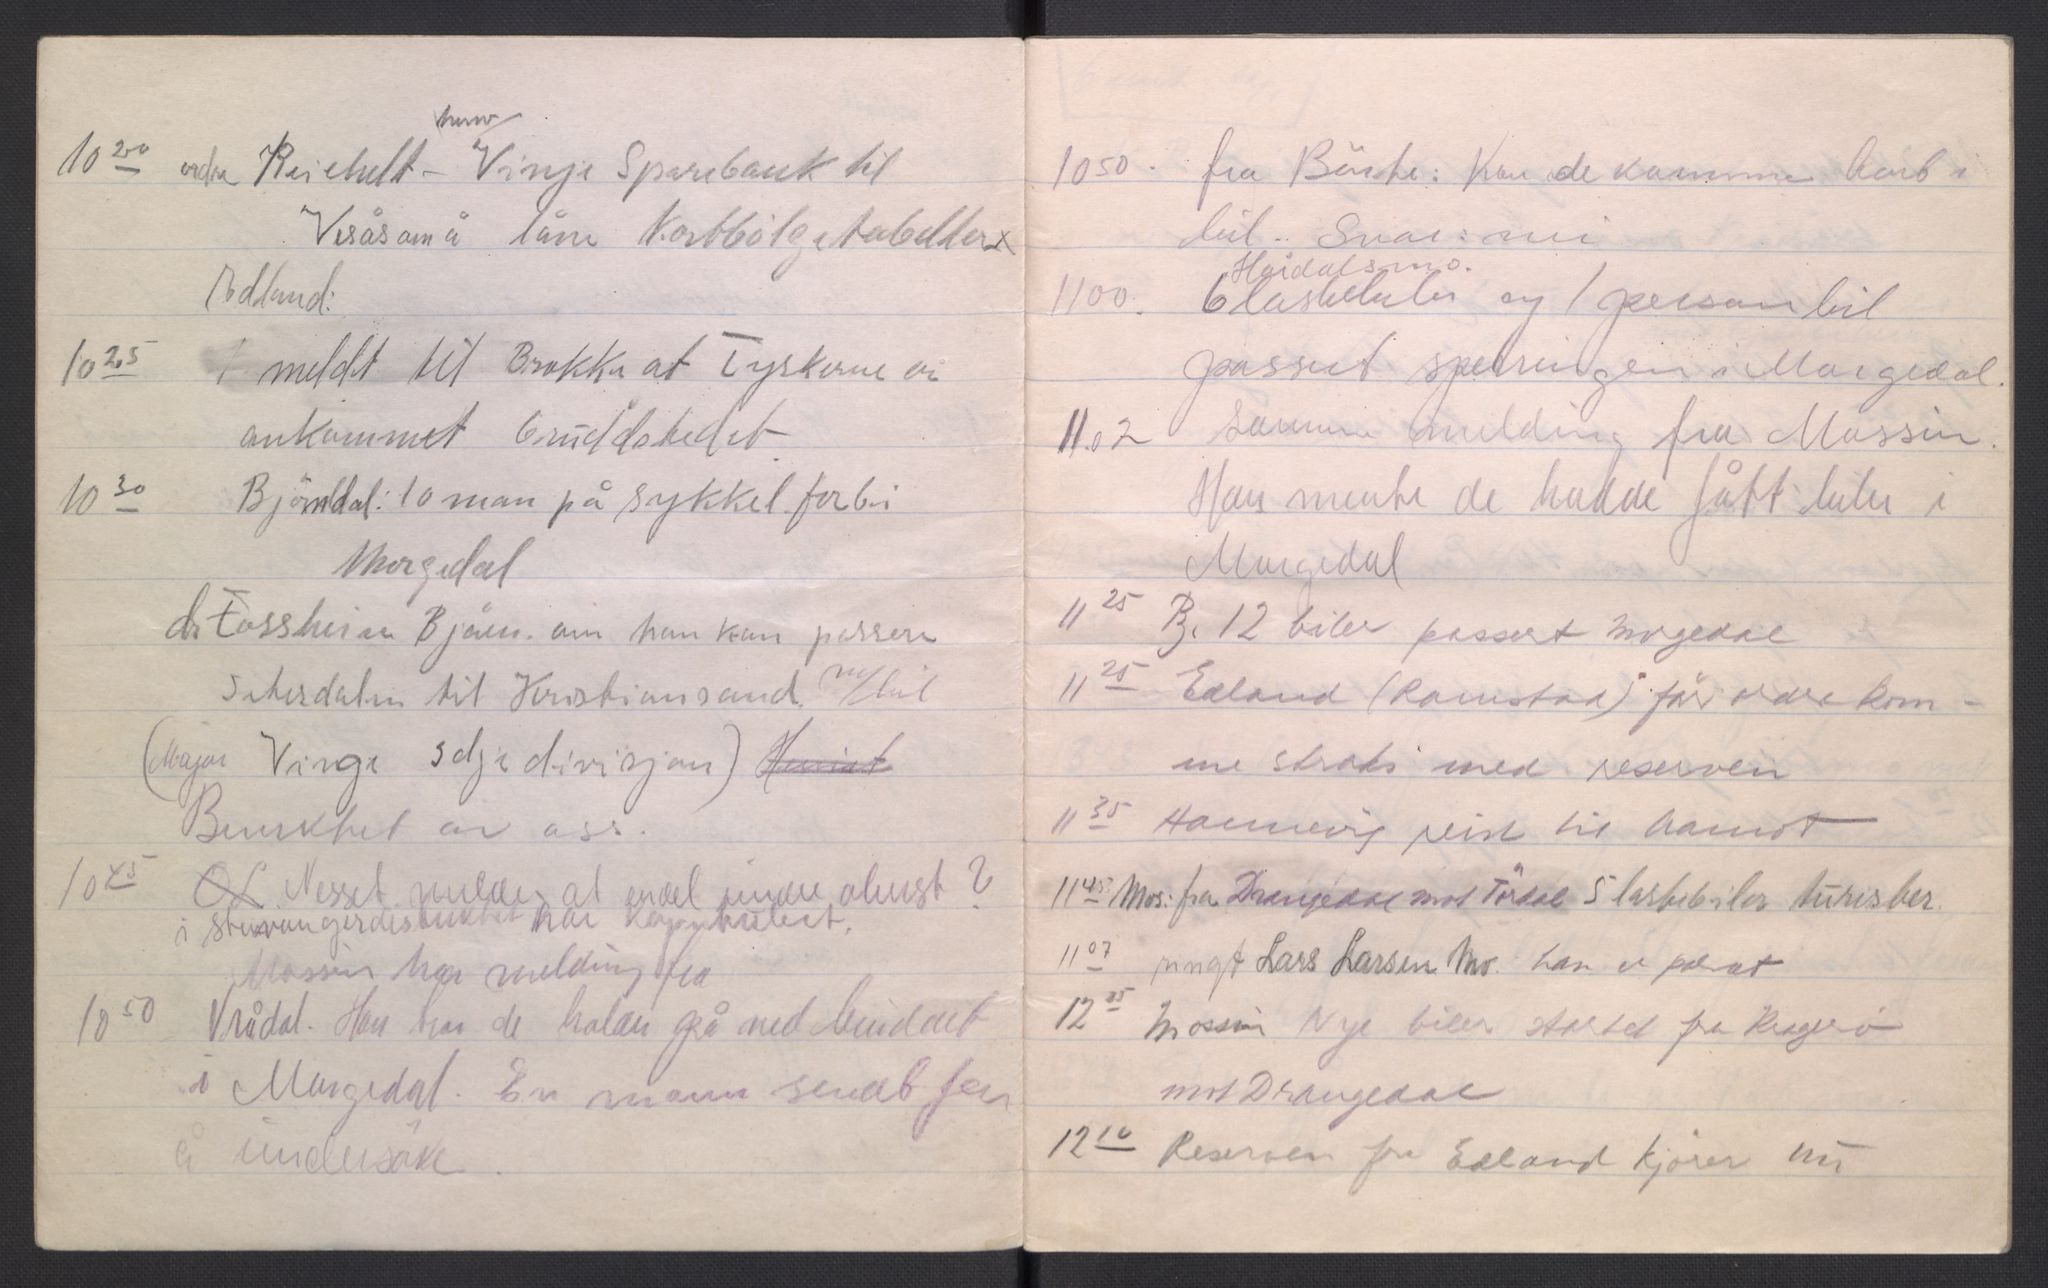 10 20 ordre Reichelt - Vinje Sparebank til
Vesåsom å låne Kortbölgetabeller x
Edland:
10 25 meldt til Brokke at Tyskerne er
ankommet bruddstedet
10 30 Bjöndal: 10 man på sykkel forbi
Morgedal
dr Fossheim Bjåen. om han kan passere
Setesdalen til Kristiansand m/bil
(Major Vinge 3dje divisjon)
av oss.
10 45 Nesset melder at endel indre
i stavangerdistriktet har kapitulert.
Mossin har melding fra
10 50 Vrådal. Han har de holdt på med bruddet
i Morgedal. En mann sendt for
å undersöke.
10 50. fra Börte: Kan de komme hort i
bil. Svar: nei
Höidalsmo.
11 00. 6 lastebiler og 1 personbil
passert sperringen i Morgedal.
11.02 Samme melding fra Mossin.
Han mente de hadde fått biler i
Morgedal
11 25 Bj. 12 biler passert Morgedal
11 25 Edland (Ramstad) får ordre kom-
me straks med reserven
11 35 Hannevig reist til Åamot
11 45 Mos: fra Drangedal mot Tördal 5 lastebiler turistber.
11 07 ringt Lars Larsen Mo. han er parat
12 05 Mossin Nye biler startet fra Kragerö
mot Drangedal
12 10 Reserven fra Edland kjörer nu